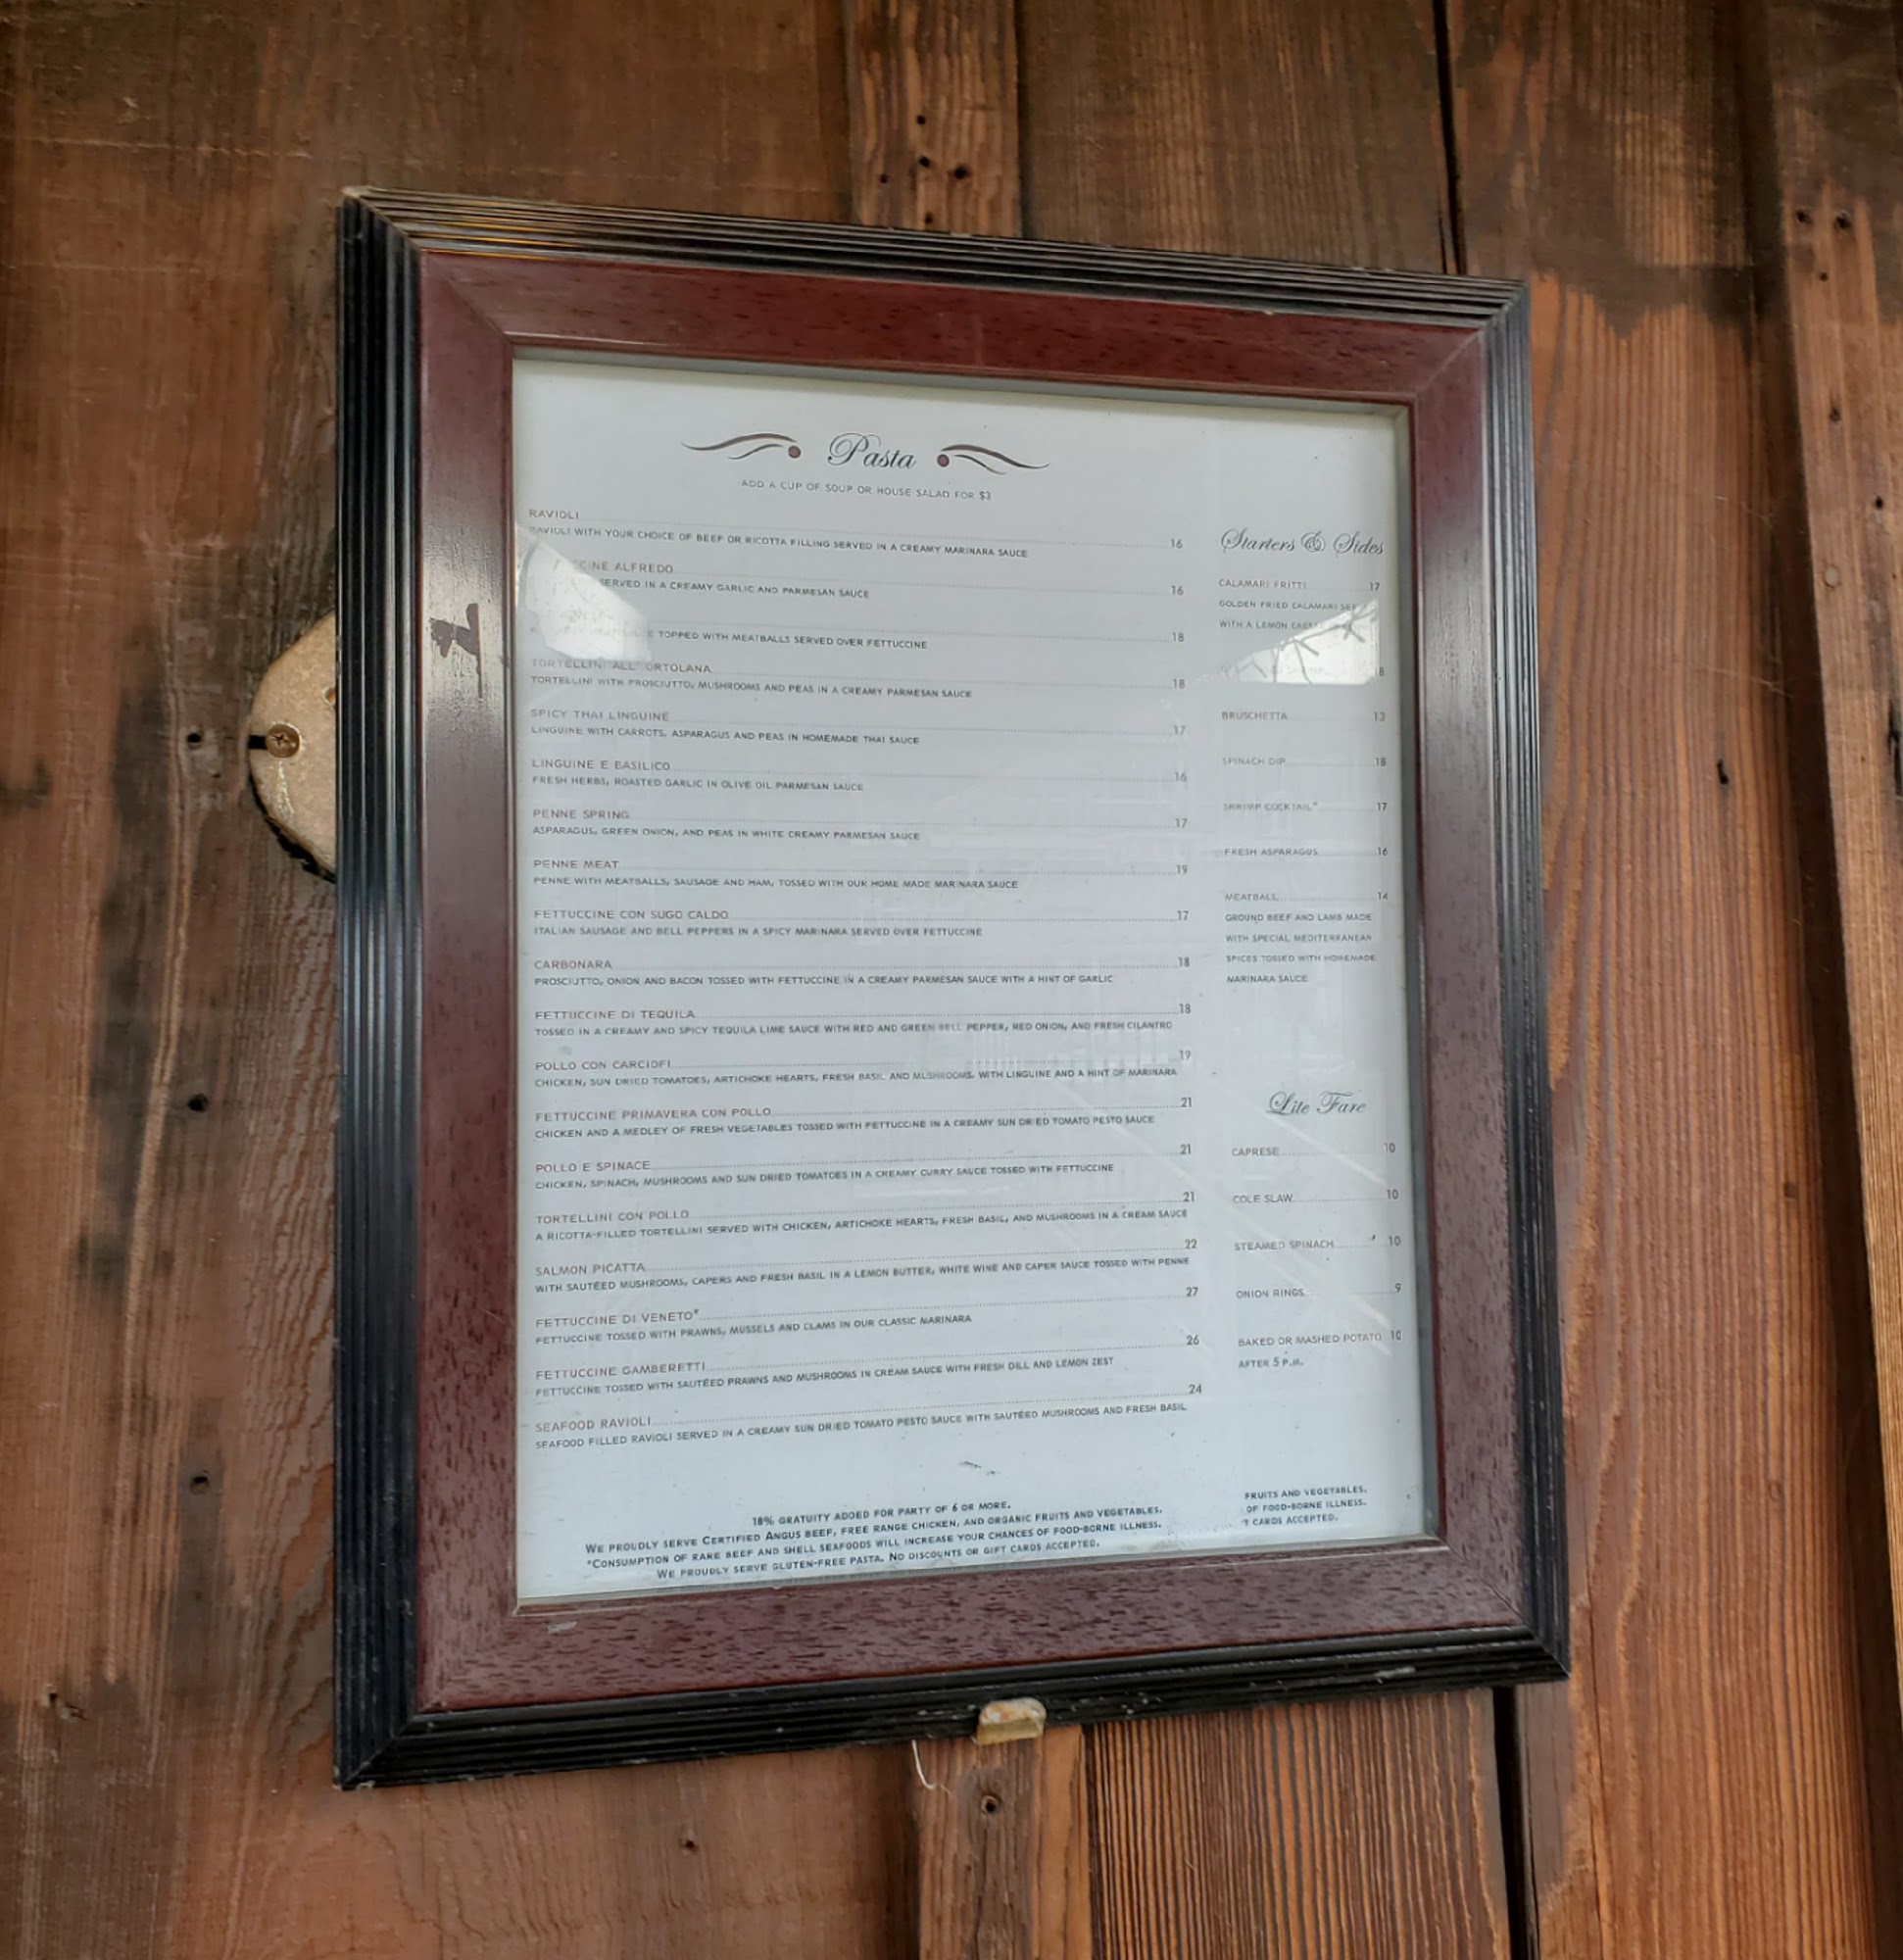 Pasta
ADD A CUP OF SOUP OR HOUSE SALAD FOR $3
RAVIOLI 16
RAVIOLI WITH YOUR CHOICE OF BEEF OR RICOTTA FILLING SERVED IN A CREAMY MARINARA SAUCE
ALFREDO 16
SERVED IN A CREAMY GARLIC AND PARMESAN SAUCE
18
TOPPED WITH MEATBALLS SERVED OVER FETTUCCINE
TORTELLINI ALL' ORTOLANA 18
TORTELLINI WITH PROSCIUTTO, MUSHROOMS AND PEAS IN A CREAMY PARMESAN SAUCE
SPICY THAI LINGUINE 17
LINGUINE WITH CARROTS, ASPARAGUS AND PEAS IN HOMEMADE THAI SAUCE
LINGUINE E BASILICO 16
FRESH HERBS, ROASTED GARLIC IN OLIVE OIL PARMESAN SAUCE
PENNE SPRING 17
ASPARAGUS, GREEN ONION, AND PEAS IN WHITE CREAMY PARMESAN SAUCE
PENNE MEAT 19
PENNE WITH MEATBALLS, SAUSAGE AND HAM, TOSSED WITH OUR HOME MADE MARINARA SAUCE
FETTUCCINE CON SUGO CALDO 17
ITALIAN SAUSAGE AND BELL PEPPERS IN A SPICY MARINARA SERVED OVER FETTUCCINE
CARBONARA 18
PROSCIUTTO, ONION AND BACON TOSSED WITH FETTUCCINE IN A CREAMY PARMESAN SAUCE WITH A HINT OF GARLIC
FETTUCCINE DI TEQUILA 18
TOSSED IN A CREAMY AND SPICY TEQUILA LIME SAUCE WITH RED AND GREEN BELL PEPPER, RED ONION, AND FRESH CILANTRO
POLLO CON CARCIOFI 19
CHICKEN, SUN DRIED TOMATOES, ARTICHOKE HEARTS, FRESH BASIL AND MUSHROOMS, WITH LINGUINE AND A HINT OF MARINARA
FETTUCCINE PRIMAVERA CON POLLO 21
CHICKEN AND A MEDLEY OF FRESH VEGETABLES TOSSED WITH FETTUCCINE IN A CREAMY SUN DRIED TOMATO PESTO SAUCE
POLLO E SPINACE 21
CHICKEN, SPINACH, MUSHROOMS AND SUN DRIED TOMATOES IN A CREAMY CURRY SAUCE TOSSED WITH FETTUCCINE
TORTELLINI CON POLLO 21
A RICOTTA-FILLED TORTELLINI SERVED WITH CHICKEN, ARTICHOKE HEARTS, FRESH BASIL, AND MUSHROOMS IN A CREAM SAUCE
SALMON PICATTA 22
WITH SAUTÉED MUSHROOMS, CAPERS AND FRESH BASIL IN A LEMON BUTTER, WHITE WINE AND CAPER SAUCE TOSSED WITH PENNE
FETTUCCINE DI VENETO* 27
FETTUCCINE TOSSED WITH PRAWNS, MUSSELS AND CLAMS IN OUR CLASSIC MARINARA
FETTUCCINE GAMBERETTI 26
FETTUCCINE TOSSED WITH SAUTÉED PRAWNS AND MUSHROOMS IN CREAM SAUCE WITH FRESH DILL AND LEMON ZEST
SEAFOOD RAVIOLI 24
SEAFOOD FILLED RAVIOLI SERVED IN A CREAMY SUN DRIED TOMATO PESTO SAUCE WITH SAUTÉED MUSHROOMS AND FRESH BASIL
18% GRATUITY ADDED FOR PARTY OF 6 OR MORE.
WE PROUDLY SERVE CERTIFIED ANGUS BEEF, FREE RANGE CHICKEN, AND ORGANIC FRUITS AND VEGETABLES.
*CONSUMPTION OF RARE BEEF AND SHELL SEAFOODS WILL INCREASE YOUR CHANCES OF FOOD-BORNE ILLNESS.
WE PROUDLY SERVE GLUTEN-FREE PASTA. NO DISCOUNTS OR GIFT CARDS ACCEPTED.
Starters & Sides
CALAMARI FRITTI 17
GOLDEN FRIED CALAMARI
WITH A LEMON
18
BRUSCHETTA 13
SPINACH DIP 18
SHRIMP COCKTAIL* 17
FRESH ASPARAGUS 16
MEATBALL 14
GROUND BEEF AND LAMB MADE
WITH SPECIAL MEDITERRANEAN
SPICES TOSSED WITH HOMEMADE
MARINARA SAUCE
Lite Fare
CAPRESE 10
COLE SLAW 10
STEAMED SPINACH 10
ONION RINGS 9
BAKED OR MASHED POTATO 10
AFTER 5 P.M.
FRUITS AND VEGETABLES.
OF FOOD-BORNE ILLNESS.
T CARDS ACCEPTED.